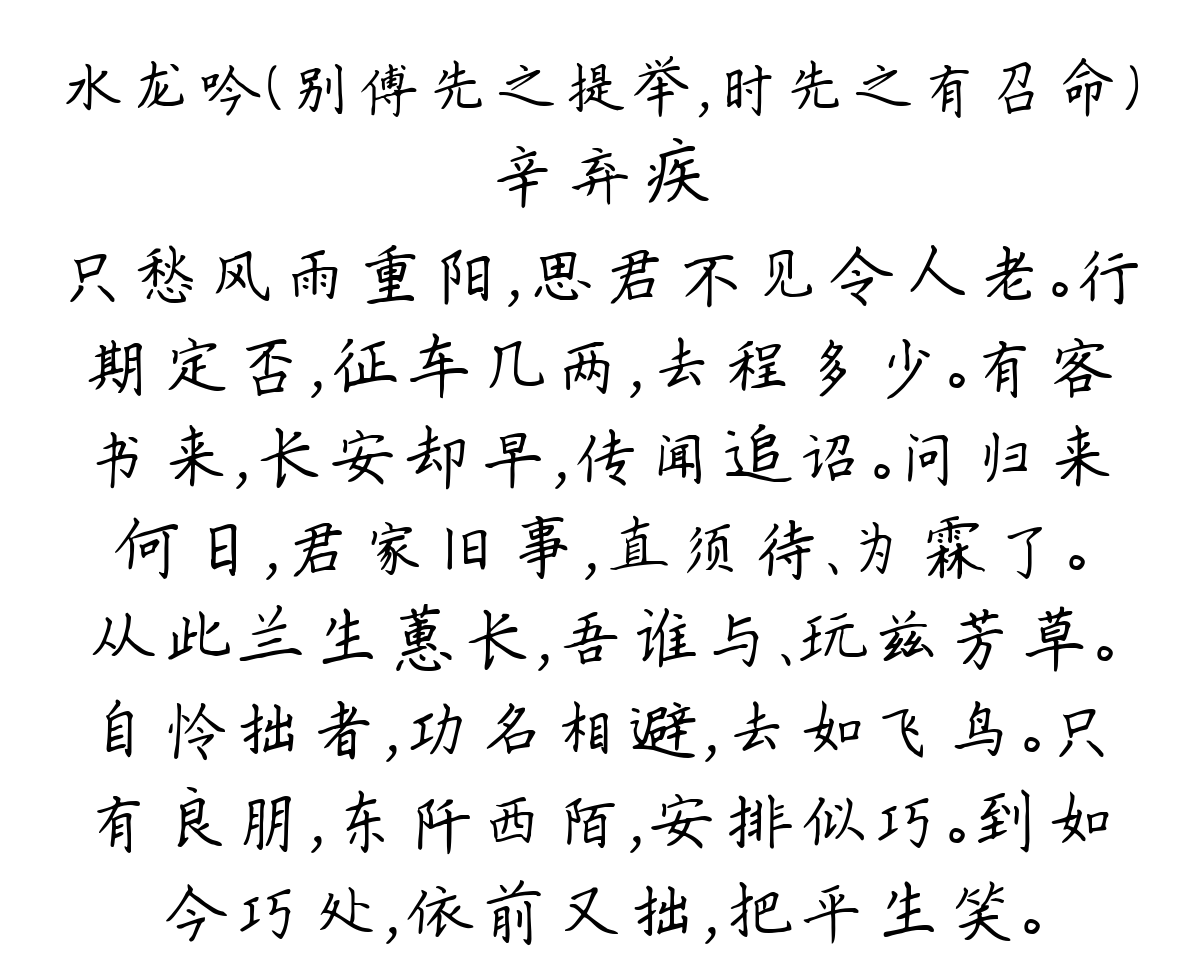 水龙吟(别傅先之提举,时先之有召命)
辛弃疾
只愁风雨重阳,思君不见令人老。行
期定否,征车几两,去程多少。有客
书来,长安却早,传闻追诏。问归来
何日,君家旧事,直须待、为霖了。
从此兰生蕙长,吾谁与、玩兹芳草。
自怜拙者,功名相避,去如飞鸟。只
有良朋,东阡西陌,安排似巧。到如
今巧处,依前又拙,把平生笑。